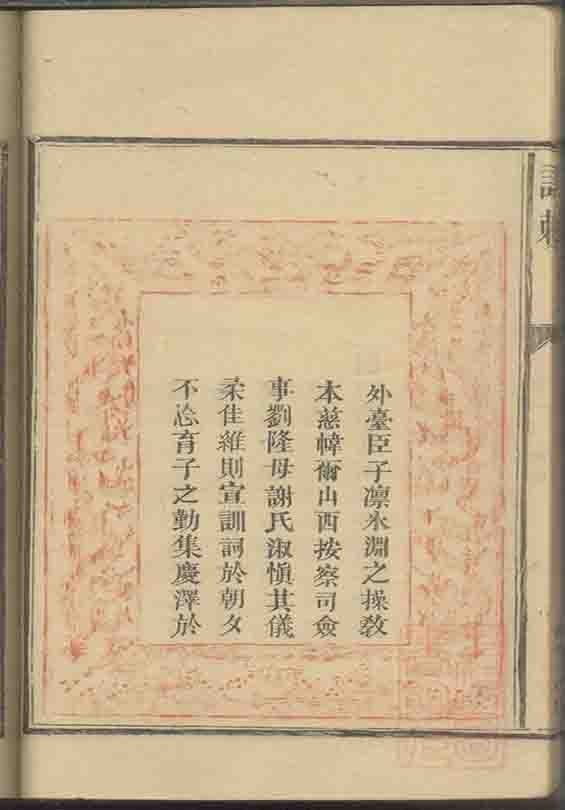 外臺臣子凛氷淵之操教
本慈幃爾山西按察司僉
事劉隆母謝氏淑慎其儀
柔佳維則宣訓詞於朝夕
不怂育子之勤集慶澤於